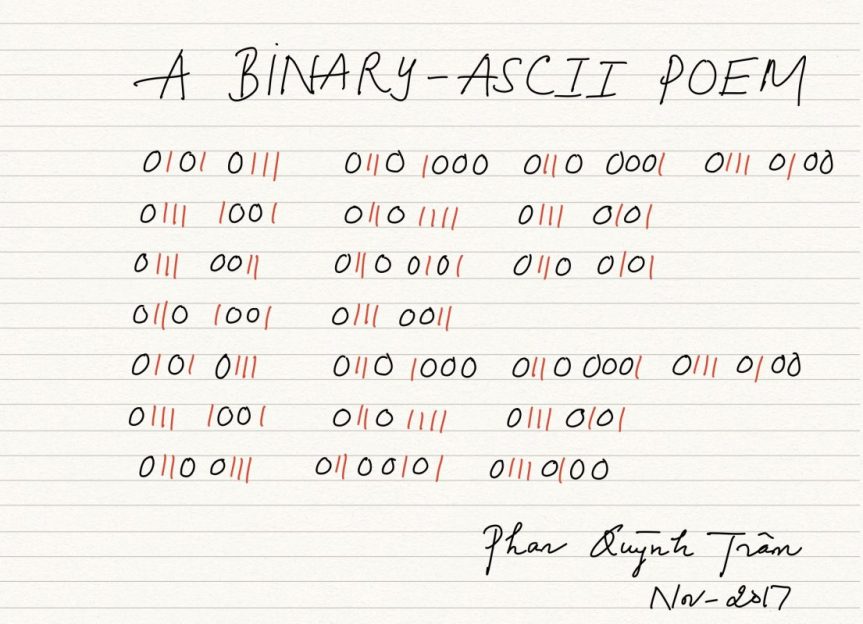 A BINARY-ASCII POEM
0101 0111 0110 1000 0110 0001 0111 0100
0111 1001 0110 1111 0111 0101
0111 0011 0110 0101 0110 0101
0110 1001 0111 0011
0101 0111 0110 1000 0110 0001 0111 0100
0111 1001 0110 1111 0111 0101
0110 0111 0110 0101 0111 0100
Phan Quỳnh Trâm
Nov-2017